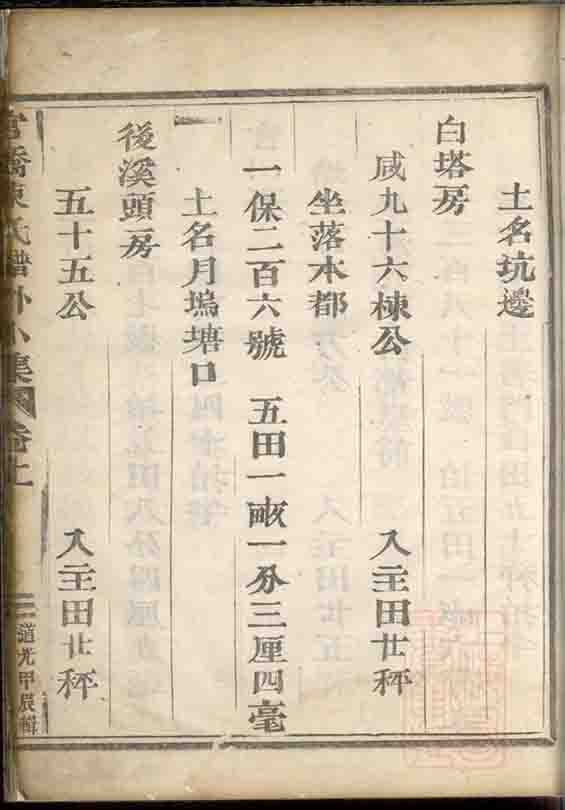 土名坑邊
白塔房
咸九十六棟公　入主田廿秤
坐落本都
一保二百六號　五田一畝一分三厘四毫
土名月塢塘口
後溪頭房
五十五公　入主田廿秤
氏譜外小集
卷上
道光甲辰輯